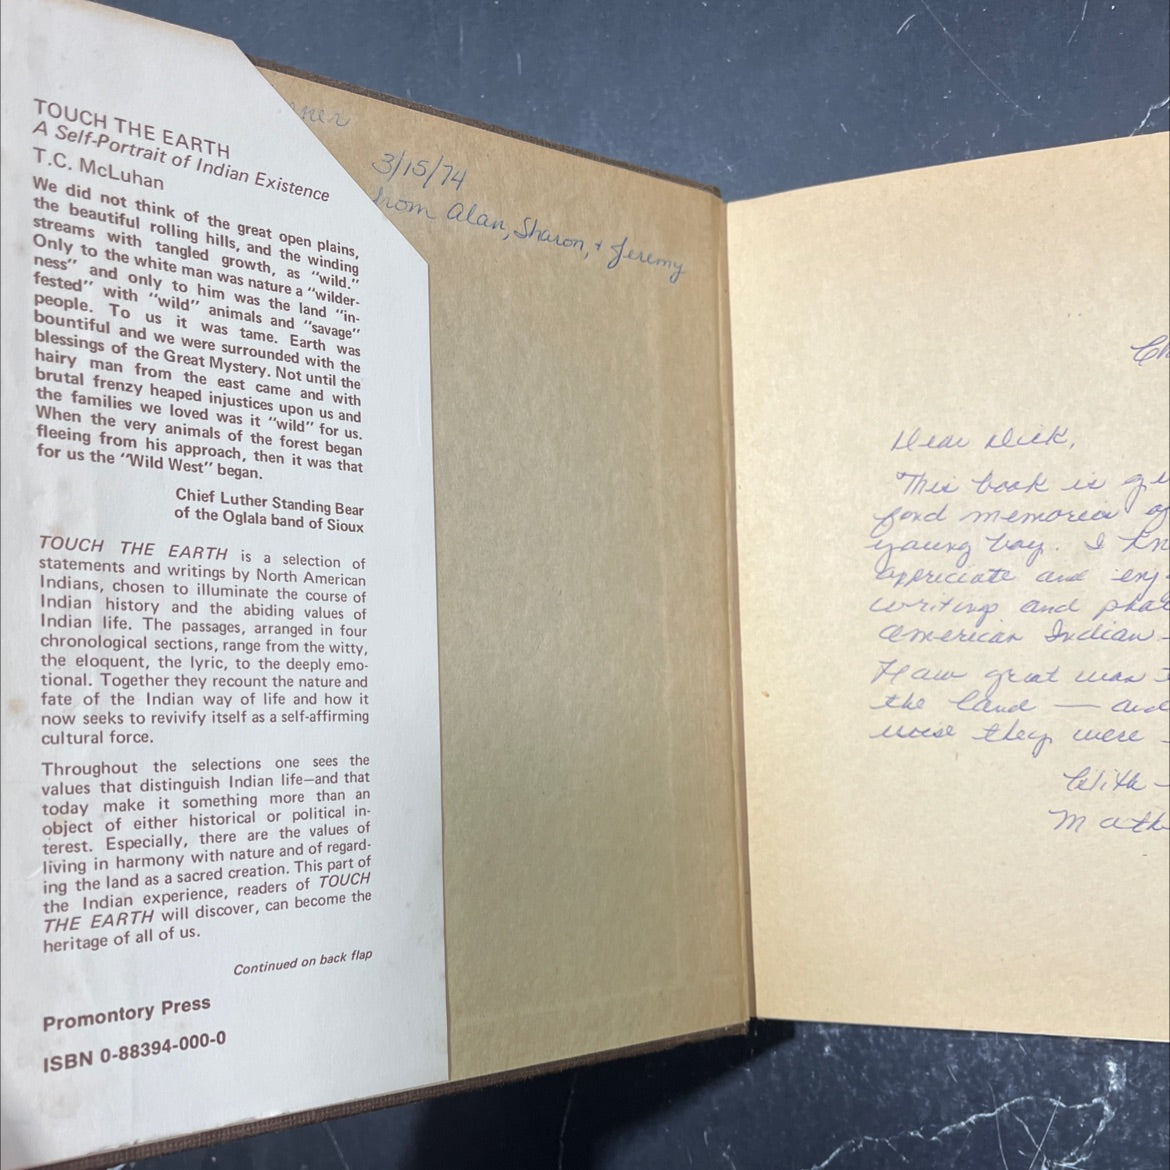 TOUCH THE EARTH
A Self-Portrait of Indian Existence
T.C. McLuhan
We did not think of the great open plains,
the beautiful rolling hills, and the winding
streams with tangled growth, as "wild."
Only to the white man was nature a "wilder-
ness" and only to him was the land "in-
fested" with "wild" animals and "savage"
people. To us it was tame. Earth was
bountiful and we were surrounded with the
blessings of the Great Mystery. Not until the
hairy man from the east came and with
brutal frenzy heaped injustices upon us and
the families we loved was it "wild" for us.
When the very animals of the forest began
fleeing from his approach, then it was that
for us the "Wild West" began.
Chief Luther Standing Bear
of the Oglala band of Sioux
TOUCH THE EARTH is a selection of
statements and writings by North American
Indians, chosen to illuminate the course of
Indian history and the abiding values of
Indian life. The passages, arranged in four
chronological sections, range from the witty,
the eloquent, the lyric, to the deeply emo-
tional. Together they recount the nature and
fate of the Indian way of life and how it
now seeks to revivify itself as a self-affirming
cultural force.
Throughout the selections one sees the
values that distinguish Indian life—and that
today make it something more than an
object of either historical or political in-
terest. Especially, there are the values of
living in harmony with nature and of regard-
ing the land as a sacred creation. This part of
the Indian experience, readers of TOUCH
THE EARTH will discover, can become the
heritage of all of us.
Continued on back flap
Promontory Press
ISBN 0-88394-000-0
3/15/74
from Alan, Sharon, + Jeremy
Dear Dick,
This book is
fond memories of
young boy. I
appriciate and
writing and
American Indian -
How great was
the land — and
wise they were -
With -